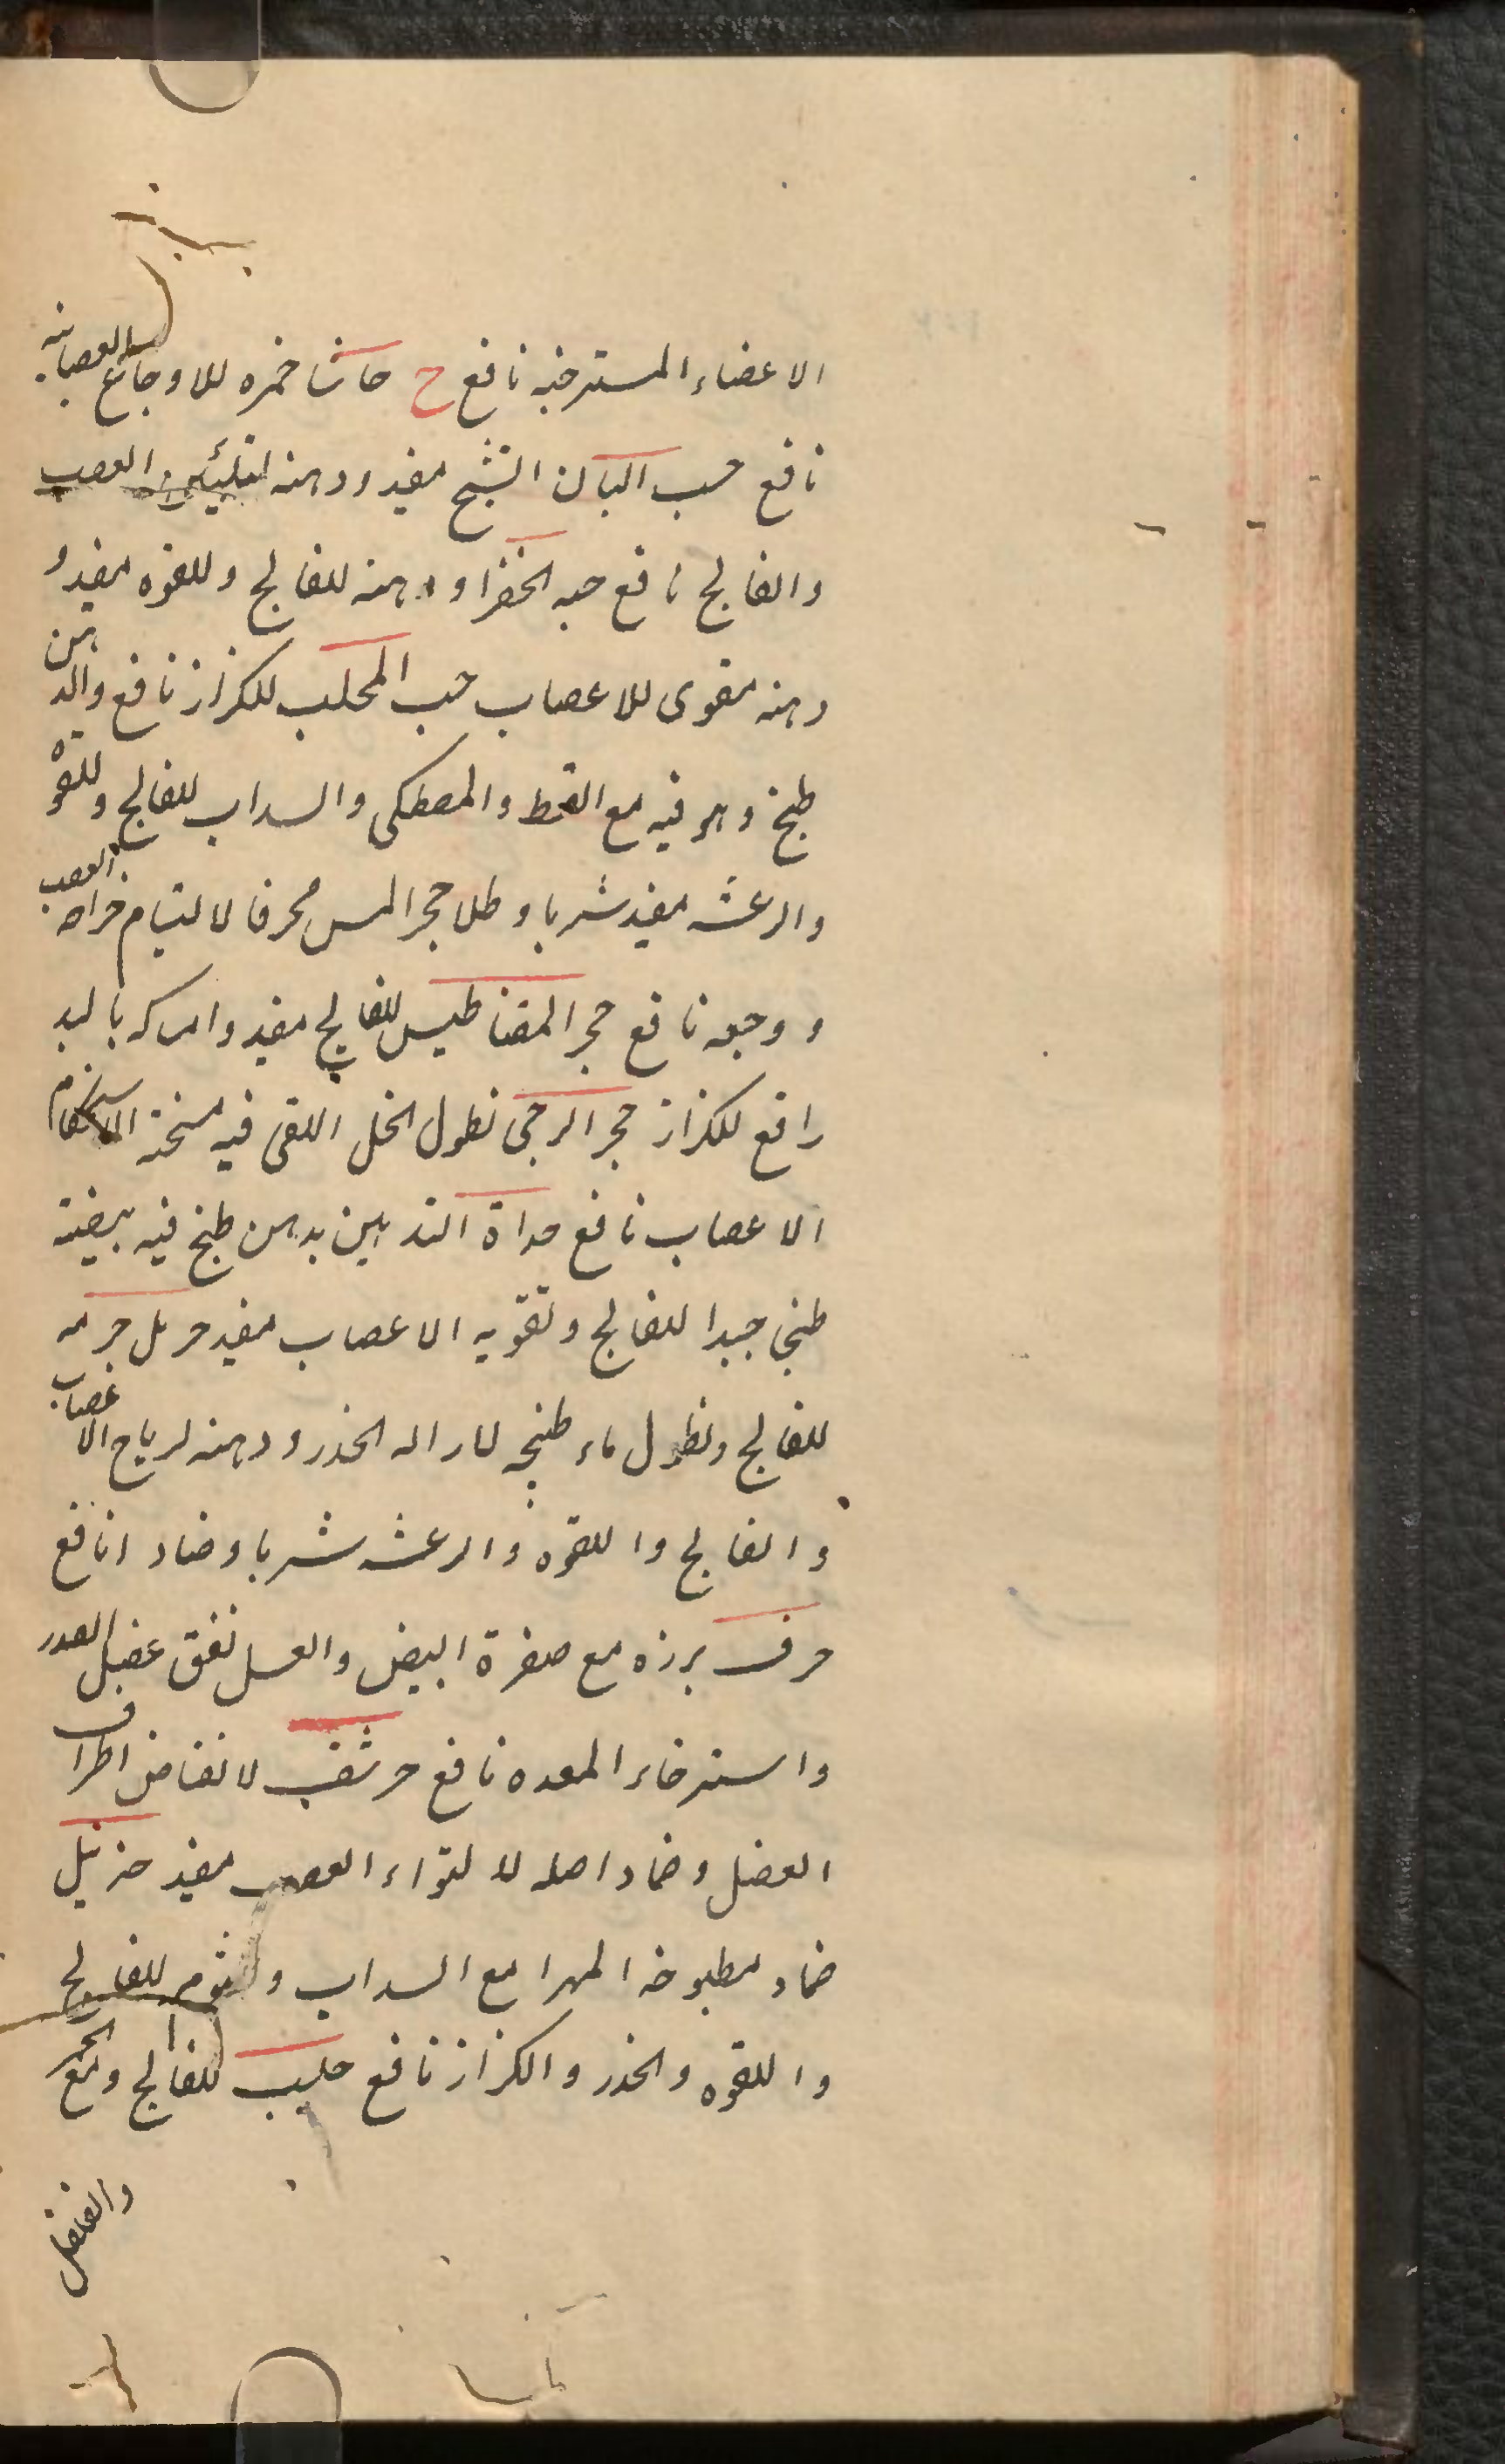 الاعضاء المسترخیه نافع ح حاشا خمره للاوجاع العصبانیه
نافع حب البان التشنج مفید ودهنه لتلیین العصب
والفالج نافع حبه الخضرا ودهنه للفالج وللقوه مفید و
دهنه مقوی للاعصاب حب المحلب للکزاز نافع والدهن
طبخ وهو فیه مع القسط والمصطکی والسداب للفالج وللقوه
والرعشه مفید شربا وطلا حجر المس محرقا لالتیام جراحه العصب
ووجعه نافع حجر المقناطیس للفالج مفید وامساکه بالید
رافع للکزاز حجر الرحی نطول الخل اللقی فیه مسخنة لاسترخام
الاعصاب نافع حداة التدهین بدهن طبخ فیه بیضته
طبخا جیدا للفالج وتقویه الاعصاب مفید حرمل جرمه
للفالج ونطول ماء طبخه لازاله الخدر ودهنه لریاح الاعصاب
والفالج واللقوه والرعشه شربا وضمادا نافع
حرف بزره مع صفرة البیض والعسل نفق عضل الصدر
واسترخاء المعده نافع حرشف لانقاض اطراف
العضل وضماد اصله لالتواء العصب مفید حزنبل
ضماد مطبوخه المهرا مع السداب والثوم للفالج
واللقوه والخدر والکزاز نافع حلیب للفالج ومع الخمر
والفلفل